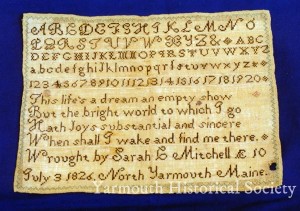 ABCDEFGHIKLMNO
PQRSTUVWXYZ& ABC
DEFGHIJKLMNOPQRSTUVWXYZ
abcdefghijklmnopqrstuvwxyz
1234567891011121314151617181920
This life's a dream an empty show
But the bright world to which I go
Hath Joys substantial and sincere
When shall I wake and find me there.
Wrought by Sarah E Mitchell Æ 10
July 3 1826. North Yarmouth Maine.
Yarmouth Historical Society